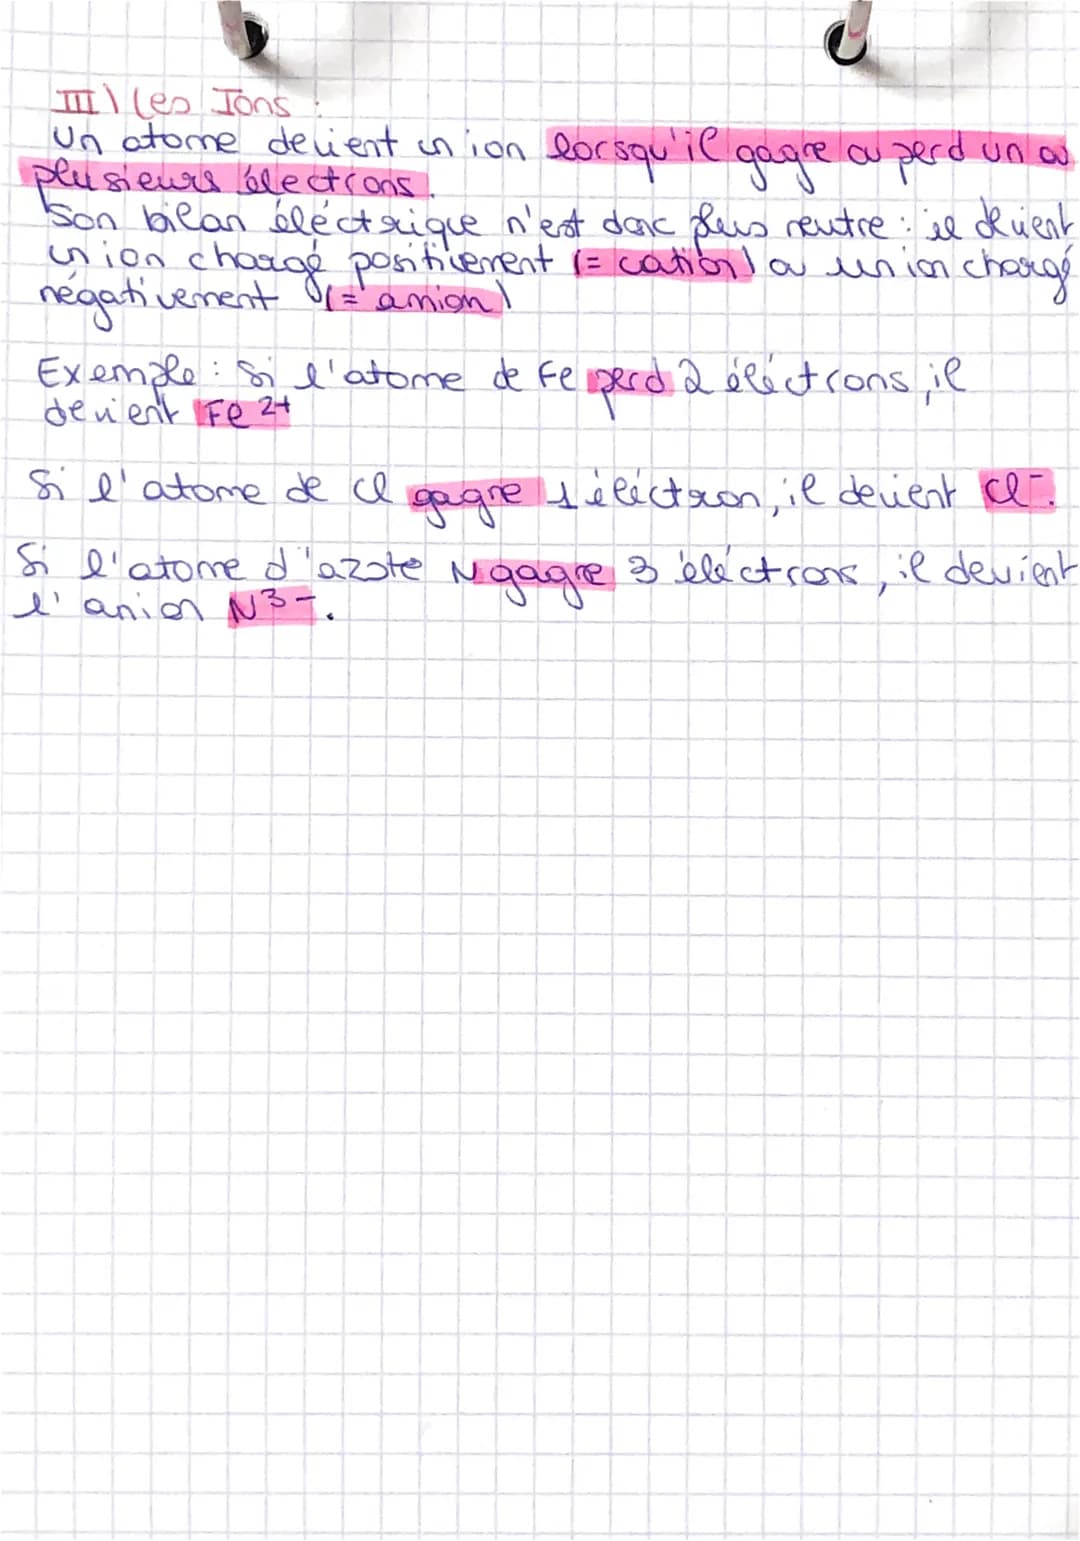 III) Les Ions :
Un atome devient un ion lorsqu'il gagne ou perd un ou
plusieurs électrons.
Son bilan éléctrique n'est donc plus neutre : il devient
un ion chargé positivement (= cation) ou un ion chargé
négativement (= anion)
Exemple : Si l'atome de Fe perd 2 éléctrons, il
devient Fe²⁺
Si l'atome de Cl gagne 1 éléctron, il devient Cl⁻.
Si l'atome d'azote N gagne 3 éléctrons, il devient
l'anion N³⁻.